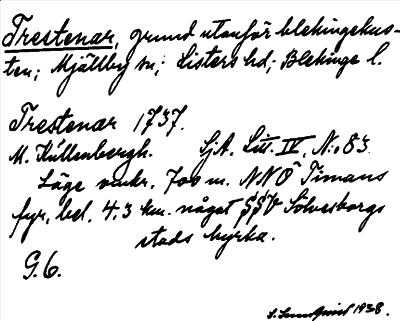 Trestenar, grund utanför blekingekus-
ten; Mjällby sn; Listers hd; Blekinge l.
Trestenar 1737.
M. Küllenbergh. SjA. Litt. IV, N:o 83.
Läge undr. 700 m. NNÖ Timans
fyr, bel. 4.3 km. något SSV Sölvesborgs
stads kyrka.
G.6.
1938.